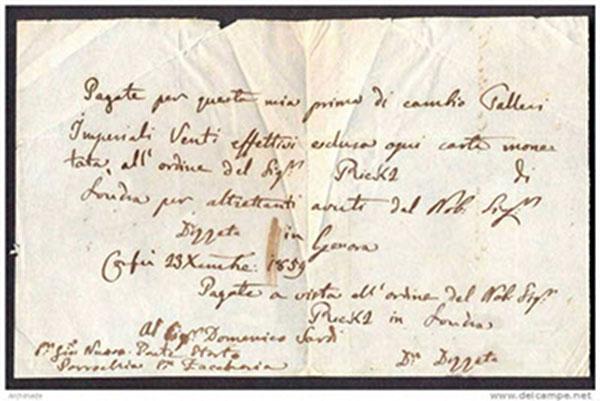 Pagate per questa mia prima di cambio Talleri
Imperiali Venti effettivi esclusa ogni carta mone-
tata, all' ordine del Sigr. di
Londra per altrettanti avuti dal Nob. Sigr.
in Genova
Corfù 23 Xembre: 1859
Pagate a vista all' ordine del Nob Sigr.
in Londra
Al Sigr. Domenico Sardi
Ponte Storto
Parrochia
Archimede
www.delcampe.net